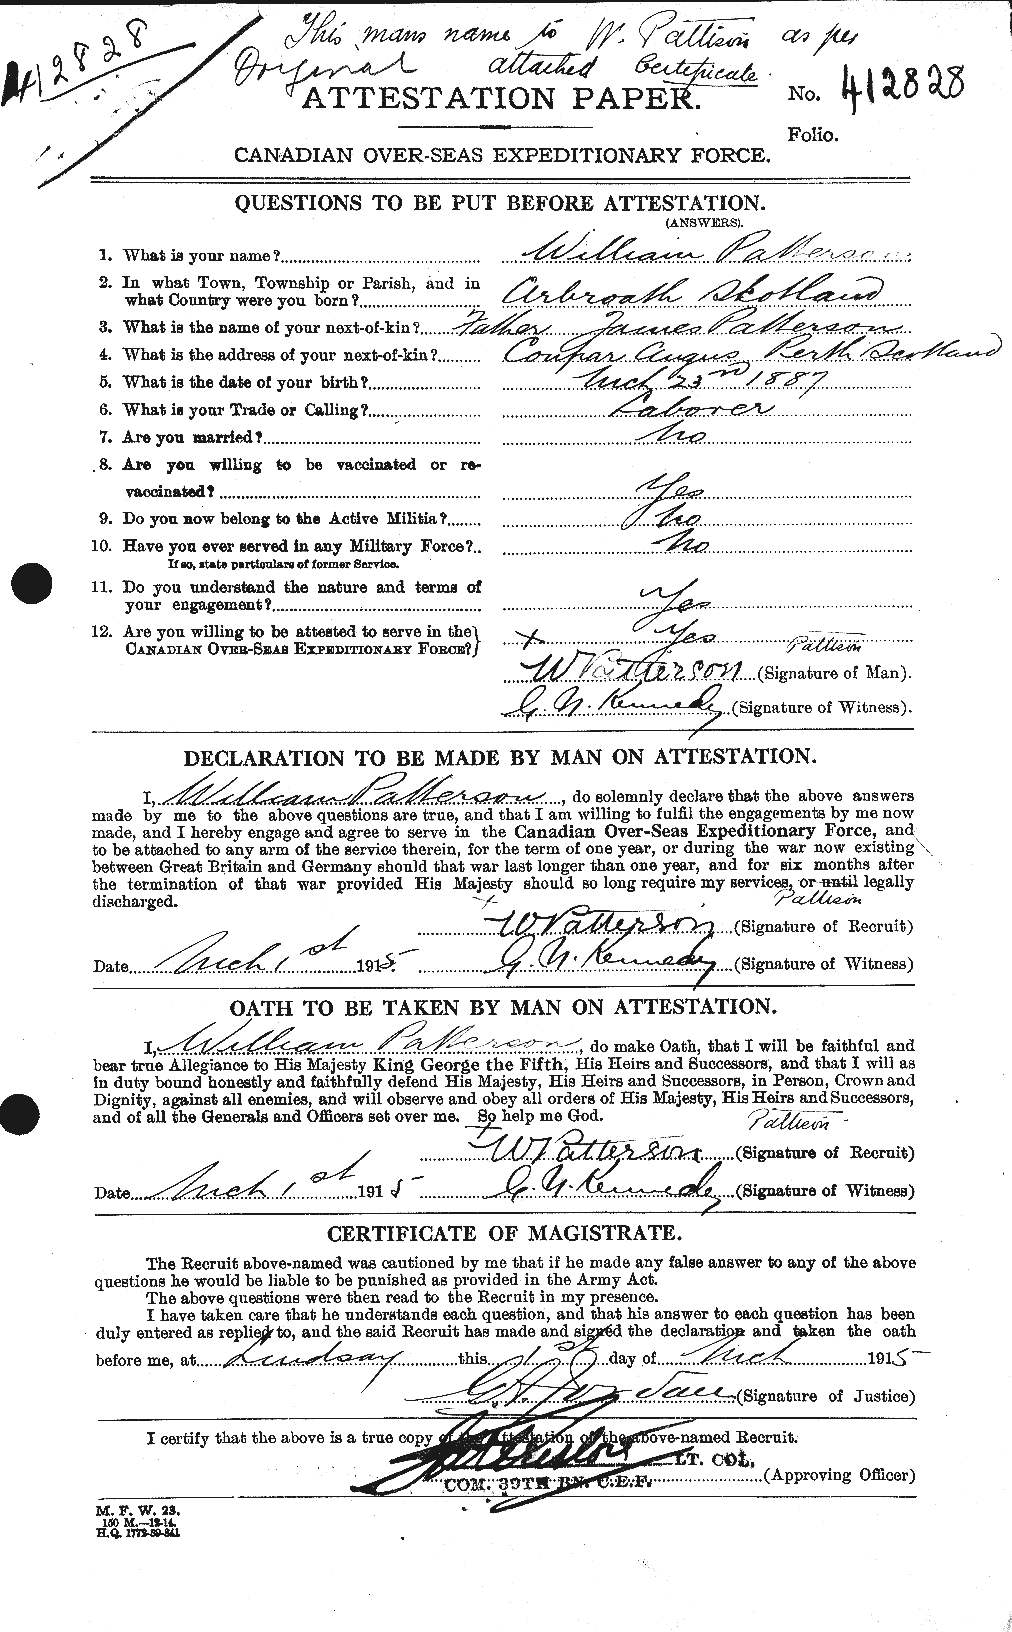 This mans name to W. Pattison as per
Original attached Certificate.
412828
ATTESTATION PAPER.
No. 412828
Folio.
CANADIAN OVER-SEAS EXPEDITIONARY FORCE.
QUESTIONS TO BE PUT BEFORE ATTESTATION.
(ANSWERS).
1. What is your name? William Patterson
2. In what Town, Township or Parish, and in
what Country were you born? Arbroath Skotland
3. What is the name of your next-of-kin? Father James Patterson
4. What is the address of your next-of-kin? Coupar Angus, Perth Scotland
5. What is the date of your birth? Mch 23rd 1887
6. What is your Trade or Calling? Laborer
7. Are you married? No
8. Are you willing to be vaccinated or re-
vaccinated? Yes
9. Do you now belong to the Active Militia? No
10. Have you ever served in any Military Force? No
If so, state particulars of former Service.
11. Do you understand the nature and terms of
your engagement? Yes
12. Are you willing to be attested to serve in the
CANADIAN OVER-SEAS EXPEDITIONARY FORCE? + Yes
Pattison
W Patterson (Signature of Man).
G. N. Kennedy (Signature of Witness).
DECLARATION TO BE MADE BY MAN ON ATTESTATION.
I, William Patterson, do solemnly declare that the above answers
made by me to the above questions are true, and that I am willing to fulfil the engagements by me now
made, and I hereby engage and agree to serve in the Canadian Over-Seas Expeditionary Force, and
to be attached to any arm of the service therein, for the term of one year, or during the war now existing
between Great Britain and Germany should that war last longer than one year, and for six months after
the termination of that war provided His Majesty should so long require my services, or until legally
discharged.
+ Pattison
W Patterson (Signature of Recruit)
Date Mch 1st 1915. G. N. Kennedy (Signature of Witness)
OATH TO BE TAKEN BY MAN ON ATTESTATION.
I, William Patterson, do make Oath, that I will be faithful and
bear true Allegiance to His Majesty King George the Fifth, His Heirs and Successors, and that I will as
in duty bound honestly and faithfully defend His Majesty, His Heirs and Successors, in Person, Crown and
Dignity, against all enemies, and will observe and obey all orders of His Majesty, His Heirs and Successors,
and of all the Generals and Officers set over me. So help me God.
+ Pattison
W Patterson (Signature of Recruit)
Date Mch 1st 1915 G. N. Kennedy (Signature of Witness)
CERTIFICATE OF MAGISTRATE.
The Recruit above-named was cautioned by me that if he made any false answer to any of the above
questions he would be liable to be punished as provided in the Army Act.
The above questions were then read to the Recruit in my presence.
I have taken care that he understands each question, and that his answer to each question has been
duly entered as replied to, and the said Recruit has made and signed the declaration and taken the oath
before me, at Lindsay this 1st day of Mch 1915
(Signature of Justice)
I certify that the above is a true copy of the Attestation of the above-named Recruit.
LT. COL.
COM. 39TH BN. C.E.F. (Approving Officer)
M. F. W. 23.
150 M.—12-14.
H.Q. 1772-39-841